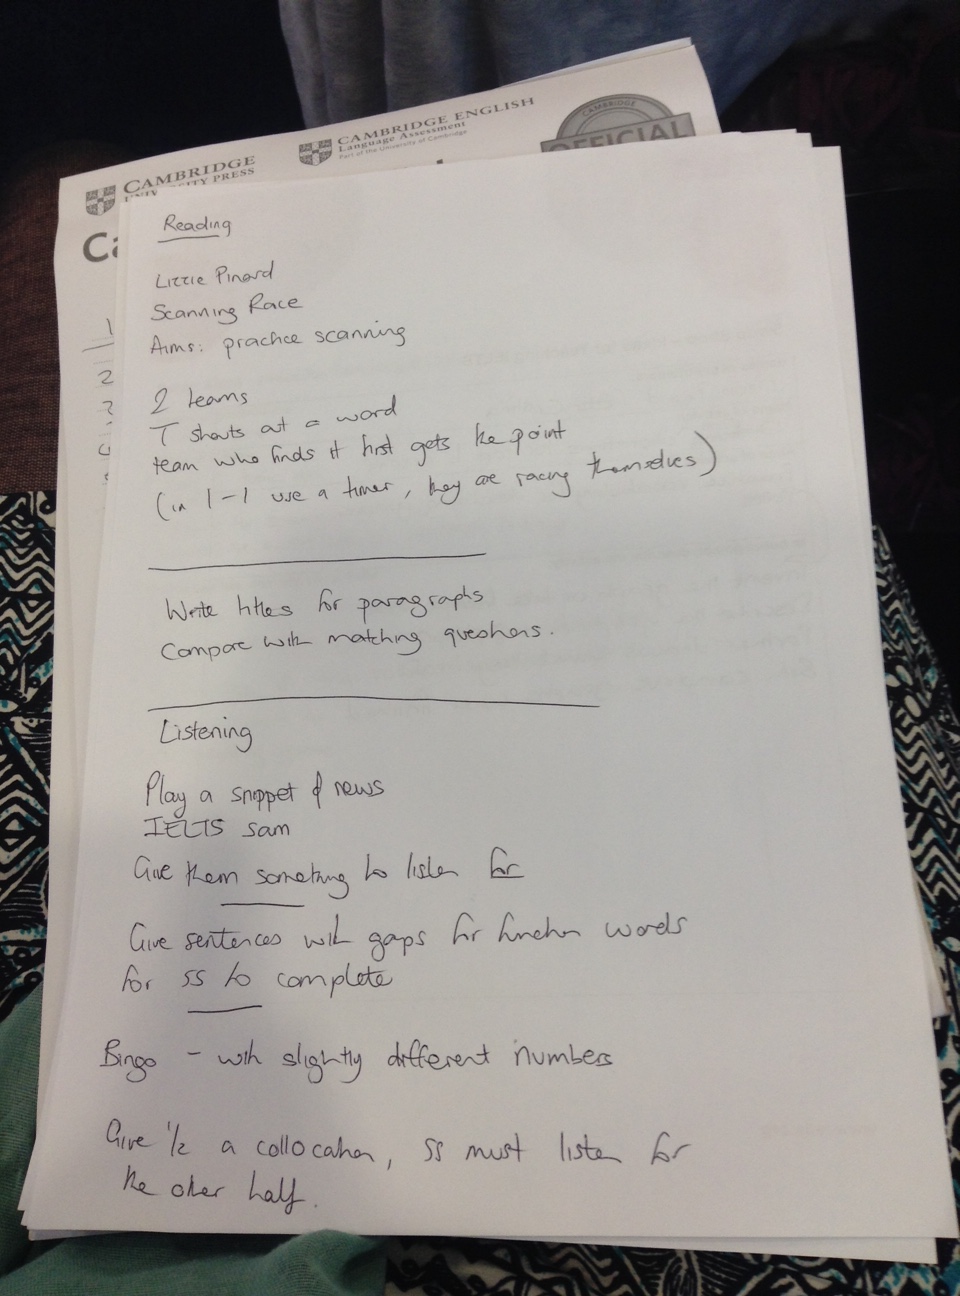 CAMBRIDGE
UNIVERSITY PRESS
CAMBRIDGE ENGLISH
Language Assessment
Part of the University of Cambridge
CAMBRIDGE
OFFICIAL
Ca
1
2
3
Reading
Lizzie Pinard
Scanning Race
Aims: practice scanning
2 teams
T shouts out a word
team who finds it first gets the point
(in 1-1 use a timer, they are racing themselves)
Write titles for paragraphs
Compare with matching questions.
Listening
Play a snippet of news
IELTS sam
Give them something to listen for
Give sentences with gaps for function words
for ss to complete
Bingo - with slightly different numbers
Give 1/2 a collocation, ss must listen for
the other half.